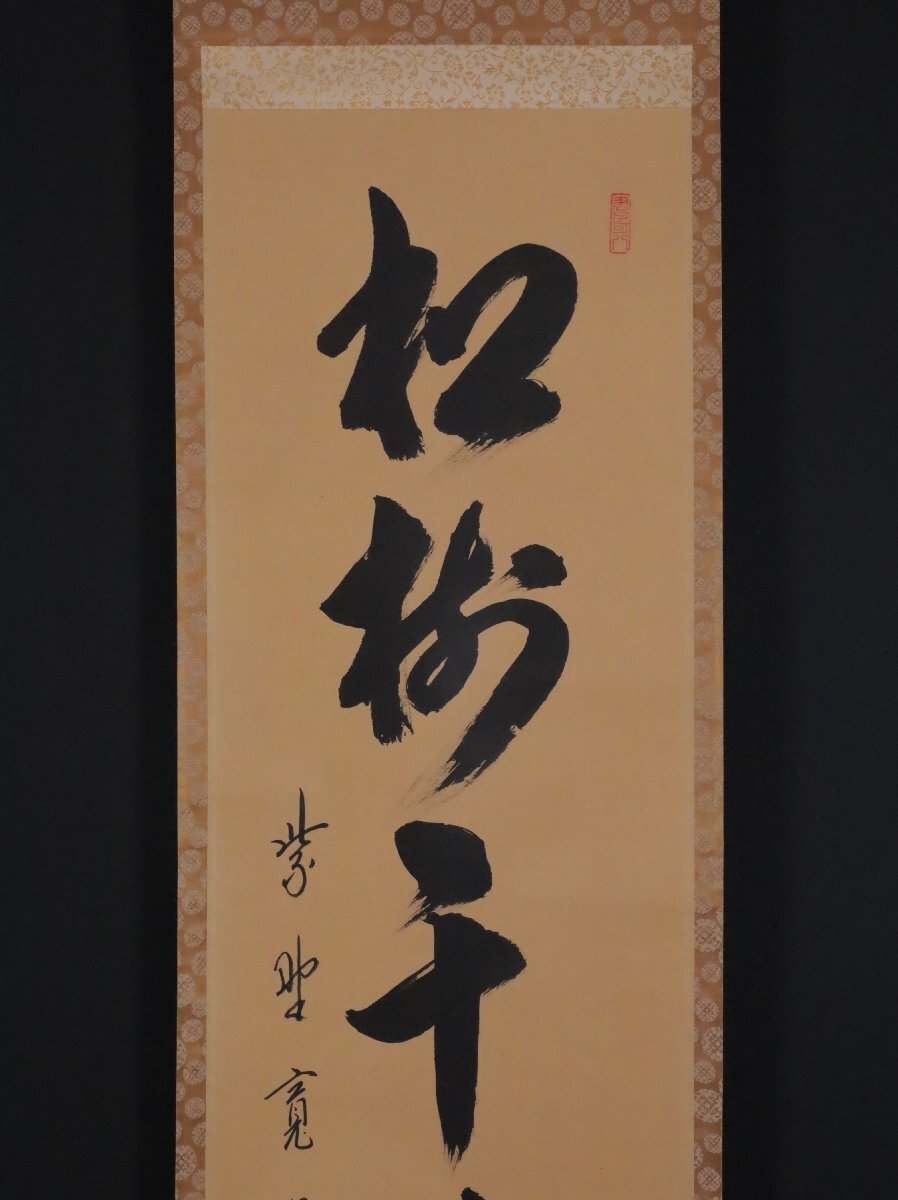 松樹千
紫野 寛